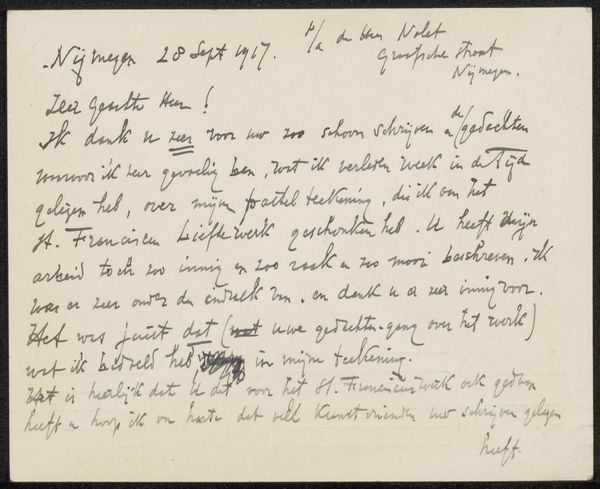 Nijmegen 28 Sept 1917.
p/a de Heer Nolet
Graafsche straat
Nijmegen.
Zeer Geachte Heer!
Ik dank u zeer voor uw zoo schoon schrijven en de gedachten
waarvoor ik zeer gevoelig ben, wat ik verleden week in de Tijd
gelezen heb, over mijn pastel teekening, die ik aan het
St. Franciscus Liefdewerk geschonken heb. U heeft mijn
arbeid toch zoo innig en zoo raak en zoo mooi beschreven. Ik
was er zeer onder den indruk van. en dank u er zeer innig voor.
Het was juist dat (uwe gedachten-gang over het werk)
wat ik bedoeld heb in mijne teekening.
Het is heerlijk dat U dit voor het St. Franciscuswerk ook gedaan
heeft en hoop ik van harte dat veel Kunstvrienden uw schrijven gelezen
heeft.